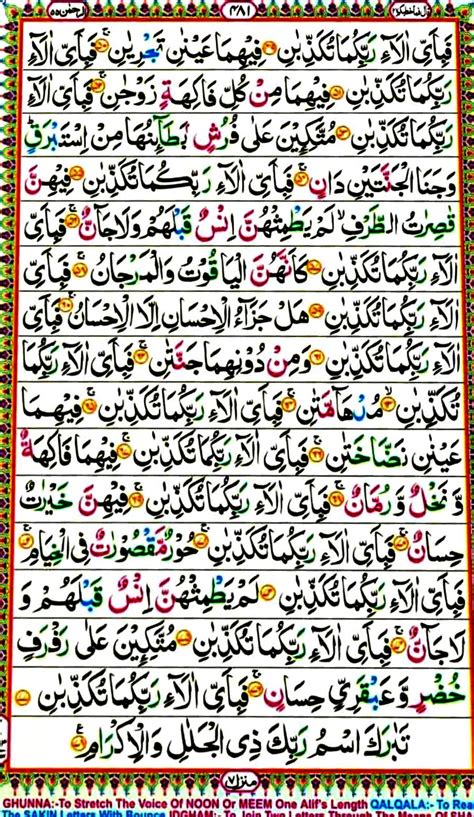 قال فما خطبكم ۲۷ ۴۸۱ الرحمن ۵۵
فَبِاَیِّ اٰلَآءِ رَبِّكُمَا تُكَذِّبٰنِ ۴۹ فِیْهِمَا عَیْنٰنِ تَجْرِیٰنِ ۵۰ فَبِاَیِّ اٰلَآءِ
رَبِّكُمَا تُكَذِّبٰنِ ۵۱ فِیْهِمَا مِنْ كُلِّ فَاكِهَةٍ زَوْجٰنِ ۵۲ فَبِاَیِّ اٰلَآءِ
رَبِّكُمَا تُكَذِّبٰنِ ۵۳ مُتَّكِـِٕیْنَ عَلٰی فُرُشٍۭ بَطَآىِٕنُهَا مِنْ اِسْتَبْرَقٍ ؕ
وَجَنَا الْجَنَّتَیْنِ دَانٍ ۵۴ فَبِاَیِّ اٰلَآءِ رَبِّكُمَا تُكَذِّبٰنِ ۵۵ فِیْهِنَّ
قٰصِرٰتُ الطَّرْفِ ۙ لَمْ یَطْمِثْهُنَّ اِنْسٌ قَبْلَهُمْ وَلَا جَآنٌّ ۵۶ فَبِاَیِّ
اٰلَآءِ رَبِّكُمَا تُكَذِّبٰنِ ۵۷ كَاَنَّهُنَّ الْیَاقُوْتُ وَالْمَرْجَانُ ۵۸ فَبِاَیِّ
اٰلَآءِ رَبِّكُمَا تُكَذِّبٰنِ ۵۹ هَلْ جَزَآءُ الْاِحْسَانِ اِلَّا الْاِحْسَانُ ۶۰ فَبِاَیِّ
اٰلَآءِ رَبِّكُمَا تُكَذِّبٰنِ ۶۱ وَمِنْ دُوْنِهِمَا جَنَّتٰنِ ۶۲ فَبِاَیِّ اٰلَآءِ رَبِّكُمَا
تُكَذِّبٰنِ ۶۳ مُدْهَآمَّتٰنِ ۶۴ فَبِاَیِّ اٰلَآءِ رَبِّكُمَا تُكَذِّبٰنِ ۶۵ فِیْهِمَا
عَیْنٰنِ نَضَّاخَتٰنِ ۶۶ فَبِاَیِّ اٰلَآءِ رَبِّكُمَا تُكَذِّبٰنِ ۶۷ فِیْهِمَا فَاكِهَةٌ
وَّ نَخْلٌ وَّ رُمَّانٌ ۶۸ فَبِاَیِّ اٰلَآءِ رَبِّكُمَا تُكَذِّبٰنِ ۶۹ فِیْهِنَّ خَیْرٰتٌ
حِسَانٌ ۷۰ فَبِاَیِّ اٰلَآءِ رَبِّكُمَا تُكَذِّبٰنِ ۷۱ حُوْرٌ مَّقْصُوْرٰتٌ فِی الْخِیَامِ ۷۲
فَبِاَیِّ اٰلَآءِ رَبِّكُمَا تُكَذِّبٰنِ ۷۳ لَمْ یَطْمِثْهُنَّ اِنْسٌ قَبْلَهُمْ وَ
لَا جَآنٌّ ۷۴ فَبِاَیِّ اٰلَآءِ رَبِّكُمَا تُكَذِّبٰنِ ۷۵ مُتَّكِـِٕیْنَ عَلٰی رَفْرَفٍ
خُضْرٍ وَّ عَبْقَرِیٍّ حِسَانٍ ۷۶ فَبِاَیِّ اٰلَآءِ رَبِّكُمَا تُكَذِّبٰنِ ۷۷
تَبٰرَكَ اسْمُ رَبِّكَ ذِی الْجَلٰلِ وَالْاِكْرَامِ ۷۸
منزل ۷
GHUNNA:-To Stretch The Voice Of NOON Or MEEM One Alif's Length QALQALA:- To Rea
The SAKIN Letters With Bounce IDGHAM:- To Join Two Letters Through The Means Of SH